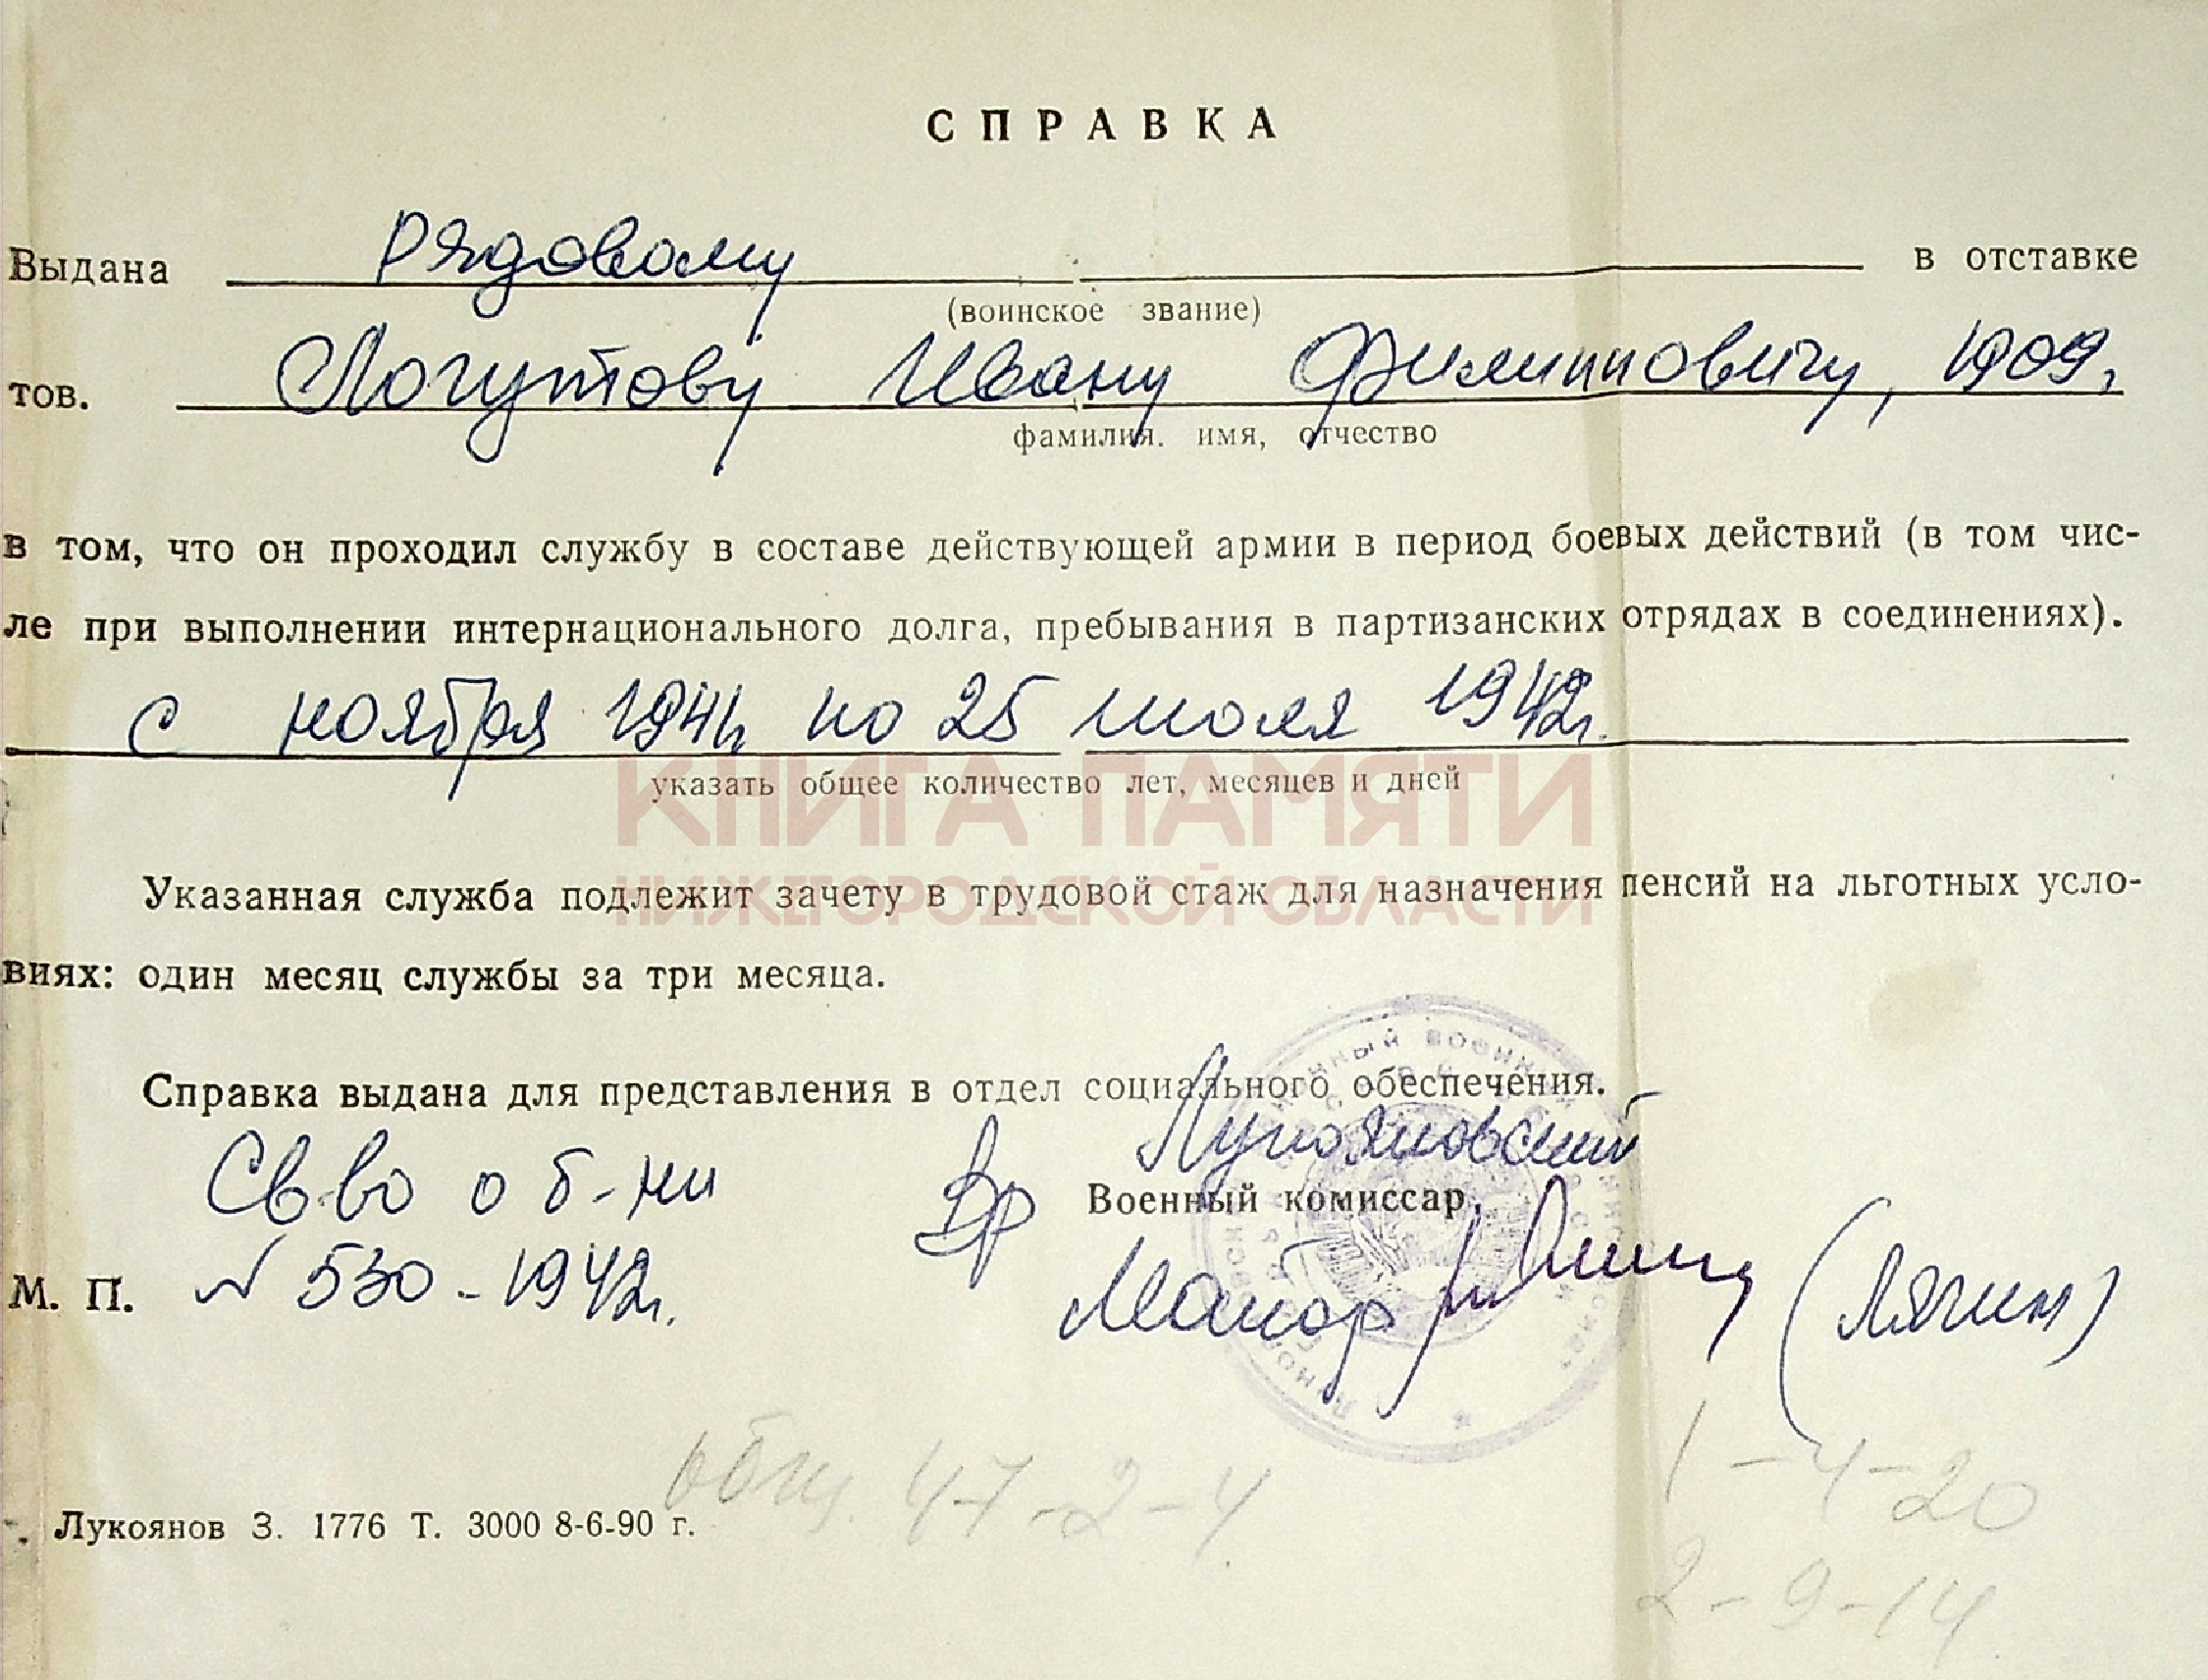 СПРАВКА
Выдана рядовому в отставке
(воинское звание)
тов. Логутову Ивану Филипповичу, 1909,
фамилия. имя, отчество
в том, что он проходил службу в составе действующей армии в период боевых действий (в том чис-
ле при выполнении интернационального долга, пребывания в партизанских отрядах в соединениях).
с ноября 1941г по 25 июля 1942г.
указать общее количество лет, месяцев и дней
КНИГА ПАМЯТИ
НИЖЕГОРОДСКОЙ ОБЛАСТИ
Указанная служба подлежит зачету в трудовой стаж для назначения пенсий на льготных усло-
виях: один месяц службы за три месяца.
Справка выдана для представления в отдел социального обеспечения.
Св-во о б-ни
Вр Лукояновский
Военный комиссар,
М. П. № 530-1942г.
Майор (Лягин)
общ. 47-2-4
1-4-20
2-9-14
Лукоянов З. 1776 Т. 3000 8-6-90 г.